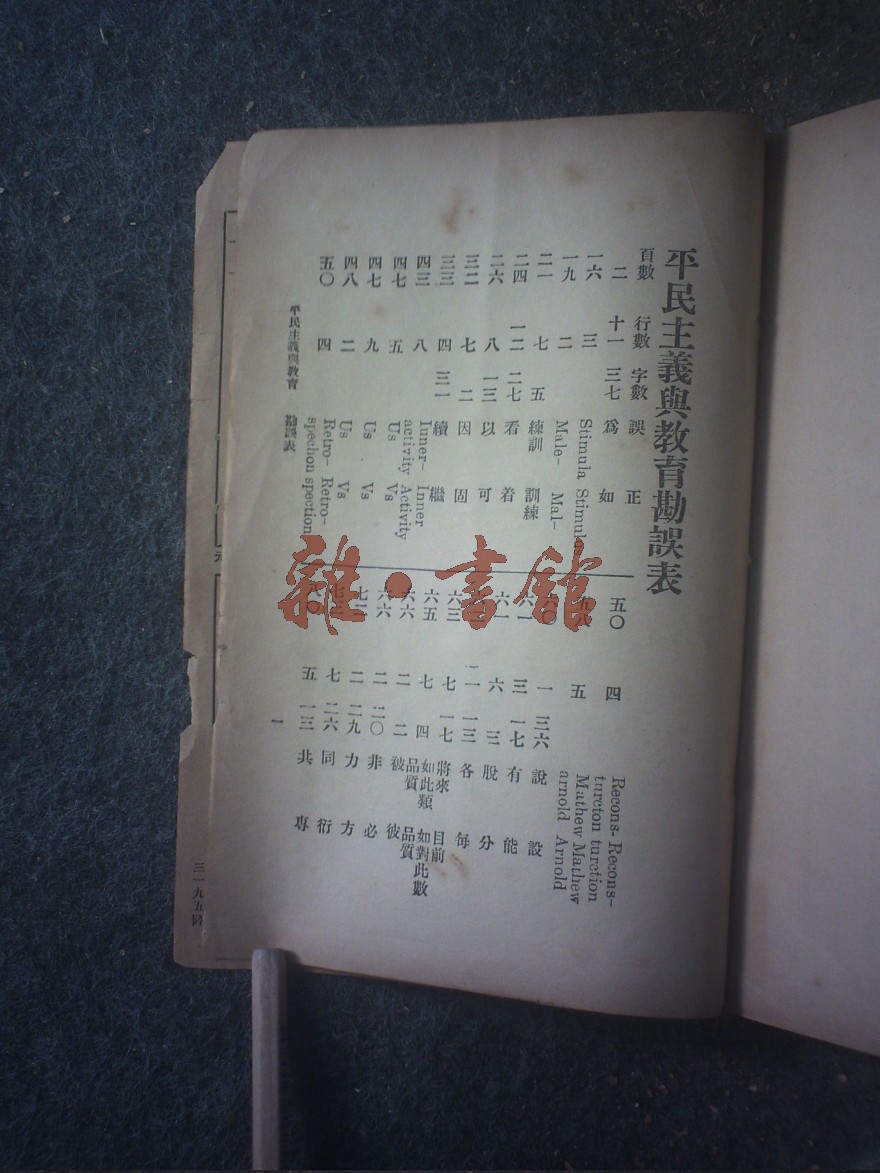 平民主義與教育勘誤表
頁數 行數 字數 誤 正
二 十一 三七 爲 如
一六 三 Stimula
一九 二 Male- Mal-
二一 七 五 練訓 訓練
二四 一二 二七 看 着
二六 八 一三 以 可
三二 七 二 因 固
三三 四 三一 續 繼
四三 八 Iuner- Inner
activity Activity
四七 五 Us Vs
四七 九 Us Vs
四八 二 Us Vs
五〇 四 Retro- Retro-
spechon spection
五〇 四 Recons- Recons-
turcton turction
五 Mathew Mathew
arnold Arnold
一 三六 說 設
三 一七 有 能
六 三 股 分
二 一三 各 每
七 一七 將來 目前
六五 七 四 如此類 如對此數
六六 二 二 品質被 品質彼
六六 二 二〇 非 必
七二 二 二九 力 方
七 二六 同 衍
八〇 五 一三 共 專
平民主義與教育 勘誤表 一
三一九五
雜·書館